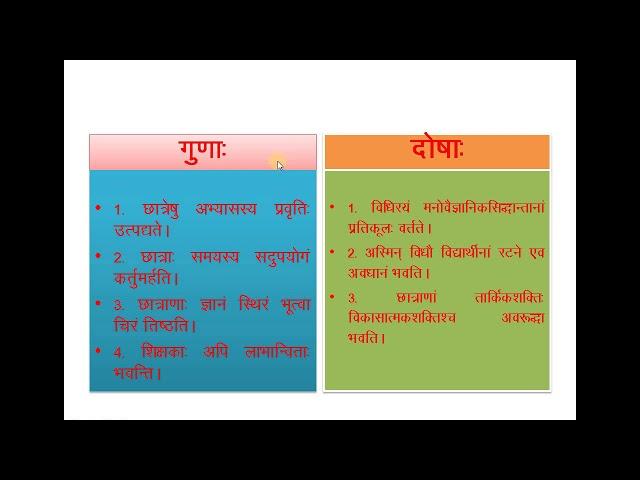 गुणाः
• 1. छात्रेषु अभ्यासस्य प्रवृतिः
उत्पद्यते।
• 2. छात्राः समयस्य सदुपयोगं
कर्तुमर्हति।
• 3. छात्राणाः ज्ञानं स्थिरं भूत्वा
चिरं तिष्ठति।
• 4. शिक्षकाः अपि लाभान्विताः
भवन्ति।
दोषाः
• 1. विधिरयं मनोवैज्ञानिकसिद्धान्तानां
प्रतिकूलः वर्तते।
• 2. अस्मिन् विधौ विद्यार्थीनां रटने एव
अवधानं भवति।
• 3. छात्राणां तार्किकशक्तिः
विकासात्मकशक्तिश्च अवरूद्धा
भवति।